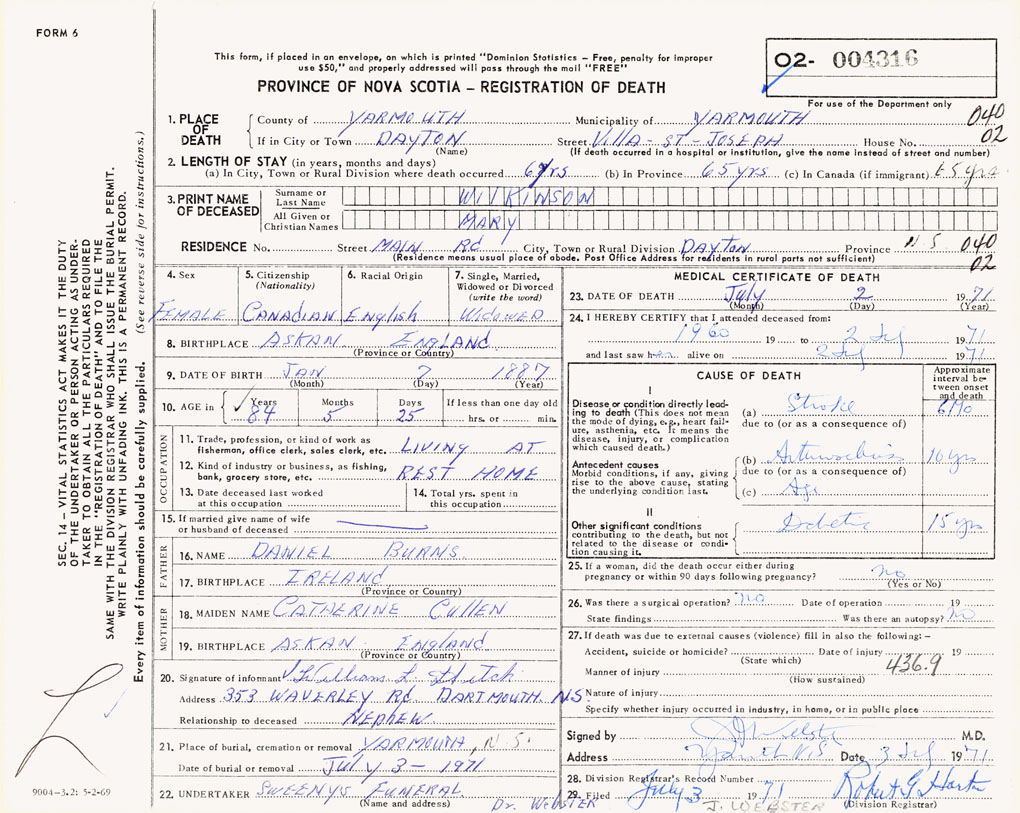 FORM 6
This form, if placed in an envelope, on which is printed "Dominion Statistics - Free, penalty for improper
use $50," and properly addressed will pass through the mail "FREE"
PROVINCE OF NOVA SCOTIA - REGISTRATION OF DEATH
02- 004316
For use of the Department only
1. PLACE OF DEATH
County of YARMOUTH Municipality of YARMOUTH 040
If in City or Town DAYTON Street VILLA-ST-JOSEPH House No. 02
(Name) (If death occurred in a hospital or institution, give the name instead of street and number)
2. LENGTH OF STAY (in years, months and days)
(a) In City, Town or Rural Division where death occurred 6 yrs (b) In Province 65 yrs (c) In Canada (if immigrant) 65 yrs
3. PRINT NAME OF DECEASED
Surname or Last Name WILKINSON
All Given or Christian Names MARY
RESIDENCE No. Street MAIN Rd City, Town or Rural Division DAYTON Province N.S. 040
(Residence means usual place of abode. Post Office Address for residents in rural parts not sufficient) 02
4. Sex
FEMALE
5. Citizenship
(Nationality)
CANADIAN
6. Racial Origin
English
7. Single, Married,
Widowed or Divorced
(write the word)
WIDOWED
8. BIRTHPLACE ASKAN ENGLAND
(Province or Country)
9. DATE OF BIRTH JAN 7 1887
(Month) (Day) (Year)
10. AGE in Years Months Days If less than one day old
84 5 25 hrs. or min.
OCCUPATION
11. Trade, profession, or kind of work as
fisherman, office clerk, sales clerk, etc. LIVING AT
12. Kind of industry or business, as fishing,
bank, grocery store, etc. REST HOME
13. Date deceased last worked
at this occupation
14. Total yrs. spent in
this occupation
15. If married give name of wife
or husband of deceased
FATHER
16. NAME DANIEL BURNS
17. BIRTHPLACE IRELAND
(Province or Country)
MOTHER
18. MAIDEN NAME CATHERINE CULLEN
19. BIRTHPLACE ASKAN ENGLAND
(Province or Country)
20. Signature of informant William L.
Address 353 WAVERLEY Rd. DARTMOUTH. N.S.
Relationship to deceased NEPHEW.
21. Place of burial, cremation or removal YARMOUTH, N.S.
Date of burial or removal JULY 3-1971
22. UNDERTAKER SWEENYS FUNERAL
(Name and address) Dr. WEBSTER
MEDICAL CERTIFICATE OF DEATH
23. DATE OF DEATH July 2 1971
(Month) (Day) (Year)
24. I HEREBY CERTIFY that I attended deceased from:
1960 19 to 2 Jly 1971
and last saw her alive on 2 Jly 1971
CAUSE OF DEATH
Approximate
interval be-
tween onset
and death
I
Disease or condition directly lead-
ing to death (This does not mean
the mode of dying, e.g., heart fail-
ure, asthenia, etc. It means the
disease, injury, or complication
which caused death.)
(a) Stroke 6 Mo
due to (or as a consequence of)
Antecedent causes
Morbid conditions, if any, giving
rise to the above cause, stating
the underlying condition last.
(b) 10 yrs
due to (or as a consequence of)
(c) Age
II
Other significant conditions
contributing to the death, but not
related to the disease or condi-
tion causing it.
15 yrs
25. If a woman, did the death occur either during
pregnancy or within 90 days following pregnancy? no
(Yes or No)
26. Was there a surgical operation? no Date of operation 19
State findings Was there an autopsy? no
27. If death was due to external causes (violence) fill in also the following:-
Accident, suicide or homicide? Date of injury 19
(State which) 436.9
Manner of injury
(How sustained)
Nature of injury
Specify whether injury occurred in industry, in home, or in public place
Signed by J Webster M.D.
Address N.S. Date 3 Jly 1971
28. Division Registrar's Record Number
29. Filed July 3 1971 Robert G.
J. WEBSTER (Division Registrar)
SEC. 14 - VITAL STATISTICS ACT MAKES IT THE DUTY
OF THE UNDERTAKER OR PERSON ACTING AS UNDER-
TAKER TO OBTAIN ALL THE PARTICULARS REQUIRED
IN THE "REGISTRATION OF DEATH" AND TO FILE THE
SAME WITH THE DIVISION REGISTRAR WHO SHALL ISSUE THE BURIAL PERMIT.
WRITE PLAINLY WITH UNFADING INK. THIS IS A PERMANENT RECORD.
Every item of information should be carefully supplied. (See reverse side for instructions.)
9004-3.2: 5-2-69